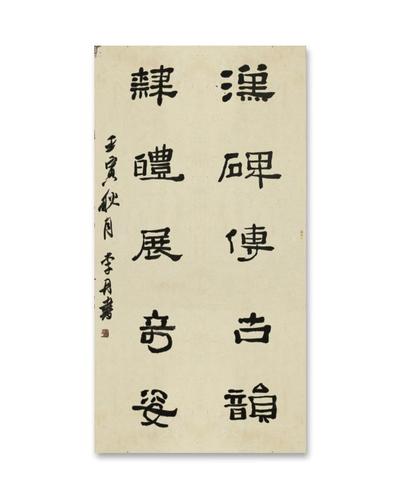 漢碑傳古韻
隸體展奇姿
壬寅秋月 李丹書